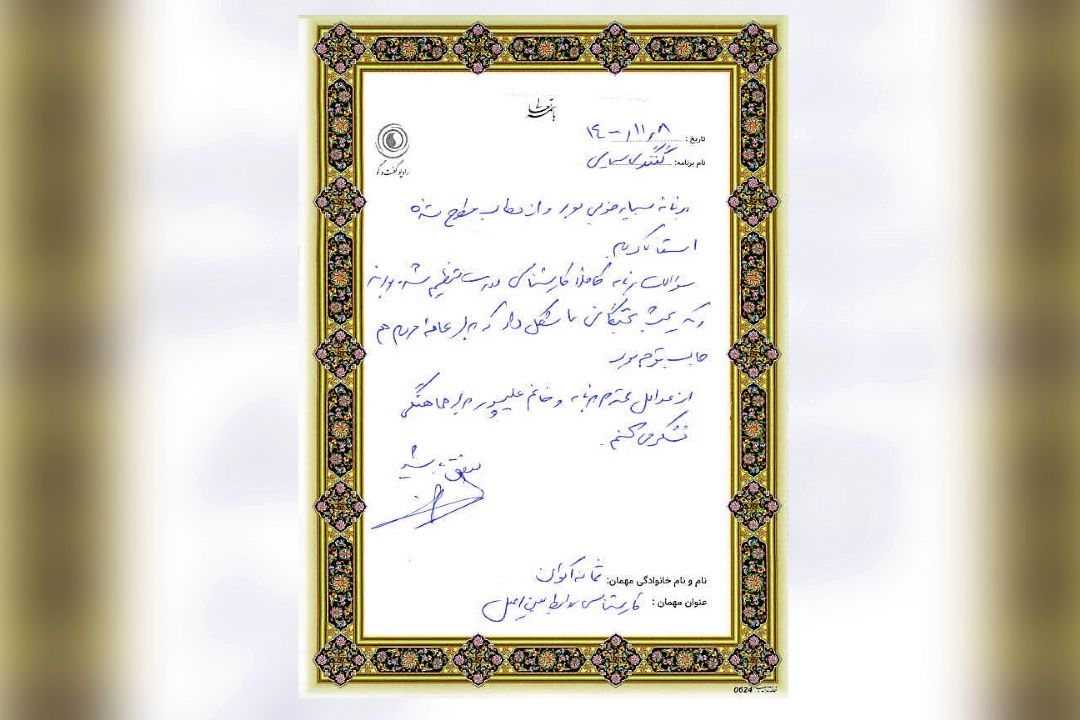 باسمه تعالی
تاریخ: ۱۴۰۰/۱۱/۸
نام برنامه: گفتگوی سیاسی
رادیو گفت و گو
برنامه بسیار خوبی بود و از مطالب مطرح شده
استفاده کردیم
سوالات برنامه کاملا کارشناسی و درست تنظیم شده بود
که بحث نخبگانی را شکل داد که برای عامه مردم هم
جالب توجه بود
از عوامل محترم برنامه و خانم علیپور برای هماهنگی
تشکر می کنم.
موفق باشید
نام و نام خانوادگی مهمان: اکوان
عنوان مهمان: کارشناس روابط بین الملل
0624